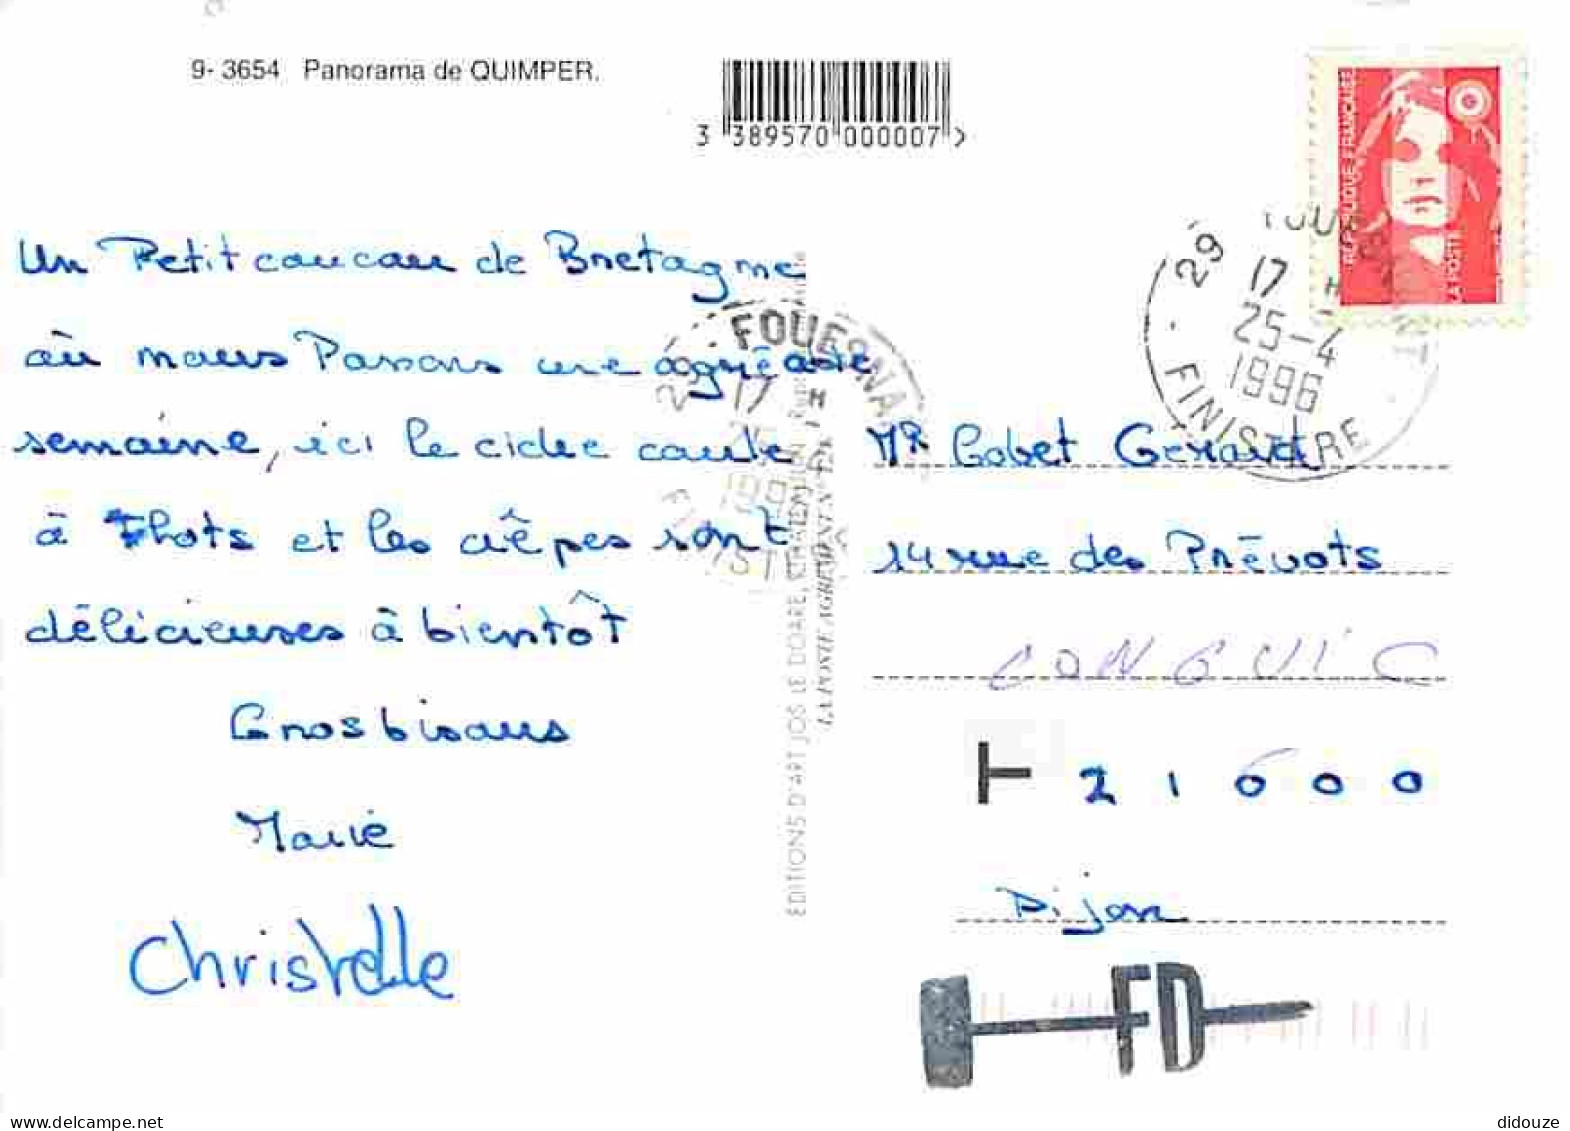 9- 3654 Panorama de QUIMPER.
3 389570 000007 >
REPUBLIQUE FRANÇAISE
LA POSTE
Un Petit coucou de Bretagne
où nous Passons une agréable
semaine, ici le cidre coule
à Flots et les crêpes sont
délicieuses à bientôt
Gros bisous
Marie
Christelle
29 FOUESNANT
17 H
25-4
1996
FINISTERE
29 FOUESNA
17 H
199
FINIST
EDITIONS D'ART JOS LE DOARE, CHATEAULIN
LA POSTE AGREMENT N°
Mr Gobet Gérard
14 rue des Prévots
LONGVIC
T 21600
Dijon
FD
didouze